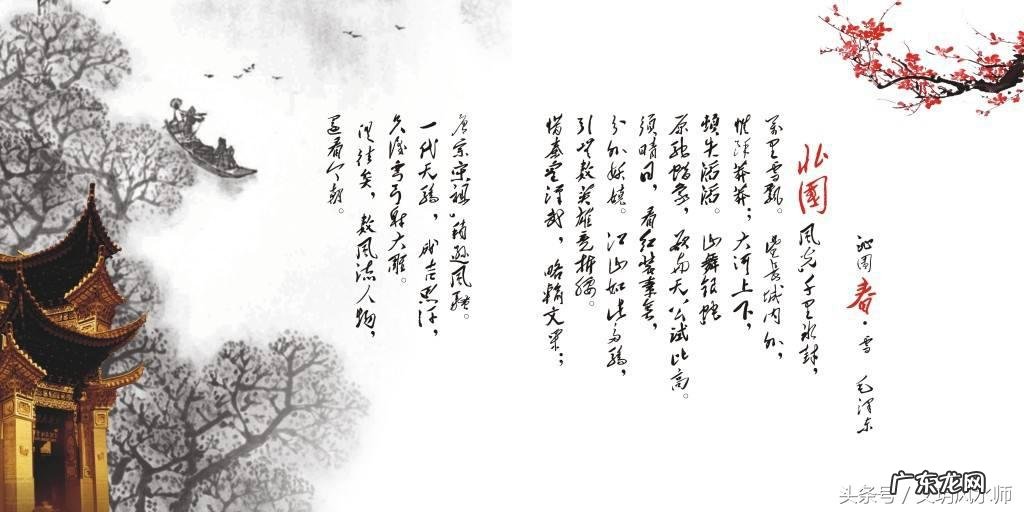 沁園春·雪 毛澤东
北國風光,千里冰封,
万里雪飄。望長城内外,
惟餘莽莽;大河上下,
頓失滔滔。山舞銀蛇
原馳蜡象,欲与天公試比高。
須晴日,看红装素裹,
分外妖娆。江山如此多驕,
引无数英雄竞折腰。
惜秦皇漢武,略输文采;
唐宗宋祖,稍逊風骚。
一代天驕,成吉思汗,
只识弯弓射大雕。
俱往矣,数風流人物,
還看今朝。
头条号 / 文玥风水师
广东龙网